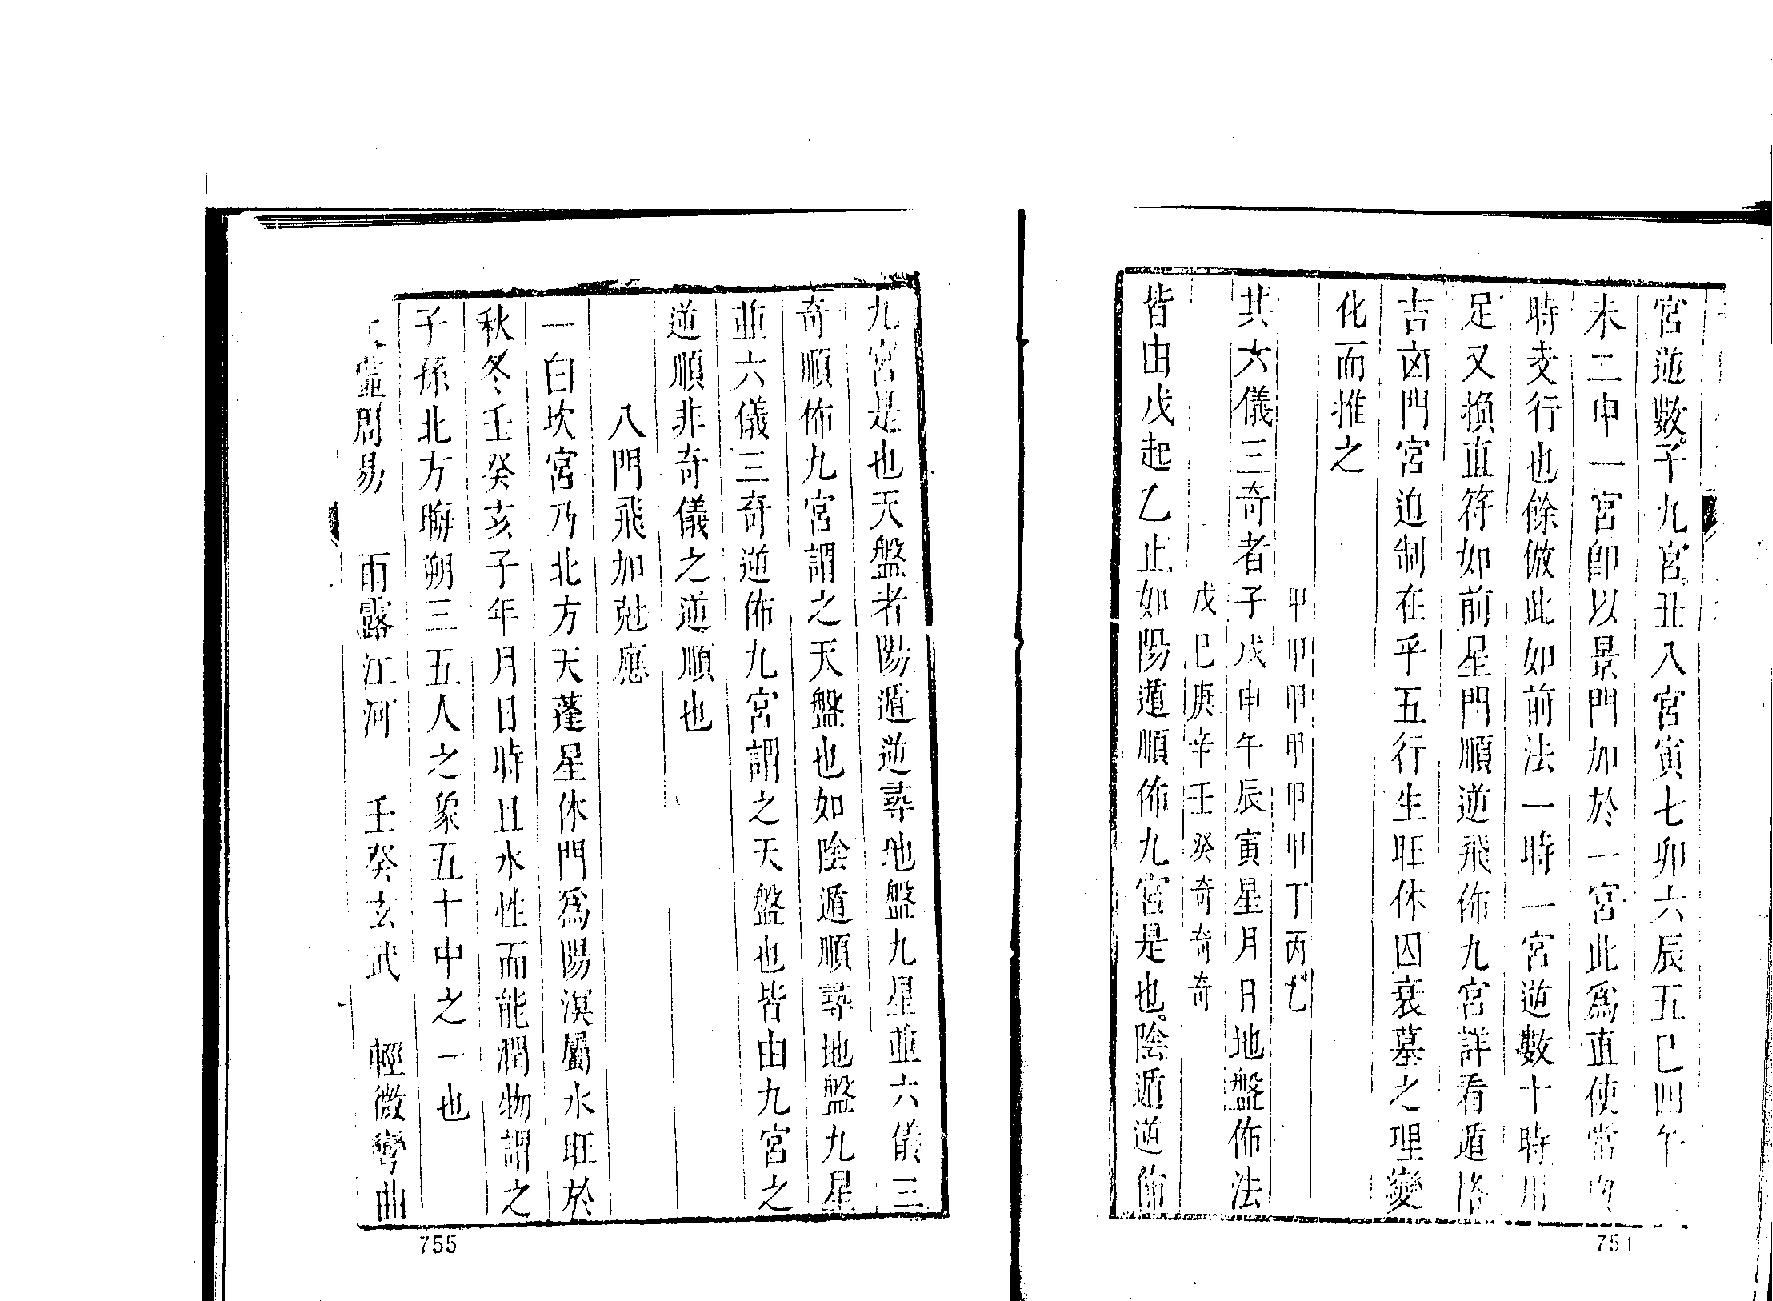 宮逆數子九宮丑八宮寅七卯六辰五巳四午
未二申一宮卽以景門加於一宮此爲直使常
時支行也餘倣此如前法一時一宮逆數十時用
足又換直符如前星門順逆飛佈九宮詳看遁格
吉凶門宮迫制在乎五行生旺休囚衰墓之理變
化而推之
甲甲甲甲甲甲丁丙乙
其六儀三奇者子戌申午辰寅星月日地盤佈法
戊巳庚辛壬癸奇奇奇
皆由戊起乙止如陽遁順佈九宮是也陰遁逆佈
751
九宮是也天盤者陽遁逆尋地盤九星並六儀三
奇順佈九宮謂之天盤也如陰遁順尋地盤九星
並六儀三奇逆佈九宮謂之天盤也皆由九宮之
逆順非奇儀之逆順也
八門飛加尅應
一白坎宮乃北方天蓬星休門爲陽溟屬水旺於
秋冬壬癸亥子年月日時且水性而能潤物謂之
子孫北方晦朔三五人之象五十中之一也
靈周易 雨露江河 壬癸玄武 輕微彎曲
755